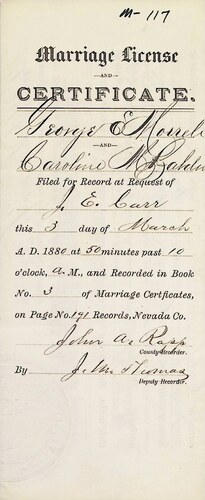 M-117
Marriage License
—AND—
CERTIFICATE.
George E
—AND—
Caroline M
Filed for Record at Request of
J. E. Carr
this 3 day of March
A. D. 1880 at 50 minutes past 10
o'clock, A. M., and Recorded in Book
No. 3 of Marriage Certficates,
on Page No. 191 Records, Nevada Co.
John A. Rapp
County Recorder.
By J. M. Thomas
Deputy Recorder.